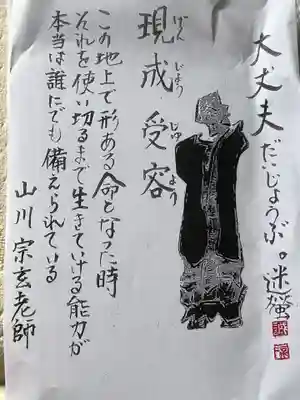 大丈夫だいじょうぶ。迷螢
現成受容
げんじょうじゅよう
この地上で形ある命となった時
それを使い切るまで生きてゆける能力が
本当は誰にでも備えられている
山川宗玄老師